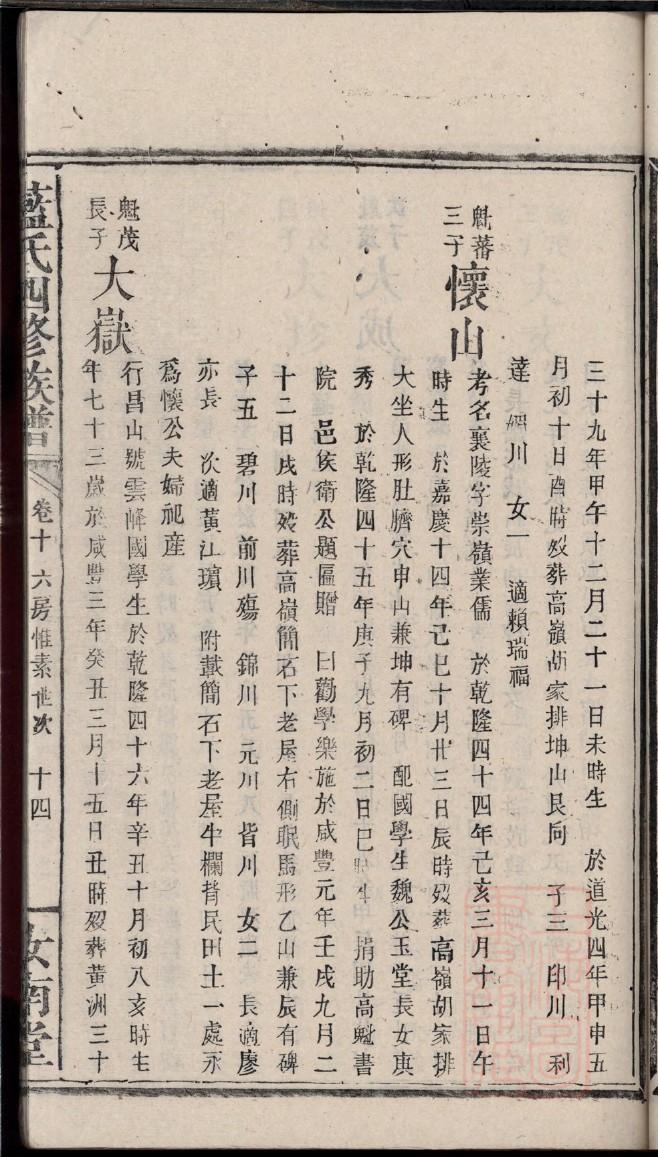 三十九年甲午十二月二十一日未時生 於道光四年甲申五
月初十日酉時歿葬高嶺胡家排坤山艮向 子三 印川 利
達 網川 女一 適賴瑞福
魁蕃
三子
懷山
考名襄陵字崇嶺業儒 於乾隆四十四年己亥三月十一日午
時生 於嘉慶十四年己巳十月廿三日辰時歿葬高嶺胡家排
大坐人形肚臍穴申山兼坤有碑 配國學生魏公玉堂長女庚
秀 於乾隆四十五年庚子九月初二日巳時生 捐助高魁書
院 邑侯衛公題匾贈 曰勸學樂施於咸豐元年壬戌九月二
十二日戌時歿葬高嶺簡石下老屋右側眠馬形乙山兼辰有碑
子五 碧川 前川殤 錦川 元川 皆川 女二 長適廖
亦長 次適黃江璸 附載簡石下老屋牛欄背民田土一處永
為懷公夫婦祀産
魁茂
長子
大嶽
行昌山號雲峰國學生於乾隆四十六年辛丑十月初八亥時生
年七十三歲於咸豐三年癸丑三月十五日丑時歿葬黃洲三十
藍氏四修族譜
卷十 六房惟素世次 十四
汝南堂